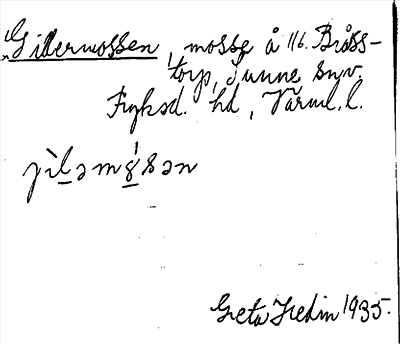 "Gillermossen, mosse å 116. Bråss-
torp, Sunne snv.
Fryksd. hd, Värml. l.
Greta Hedin 1935.